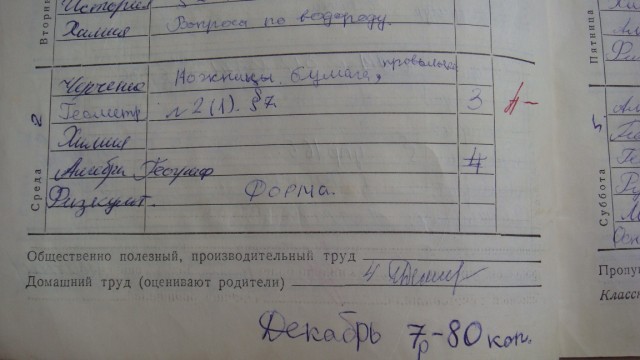 Вторни
История
Химия Вопросы по водороду.
Среда 2
Черчение Ножницы, бумага, проволька
Геометр № 2(1). §7 3
Химия
Алгебра Географ 4
Физкульт. Форма.
Общественно полезный, производительный труд
Домашний труд (оценивают родители) 4
Декабрь 7р-80 коп.
Пятница
Суббота
Пропу
Класс